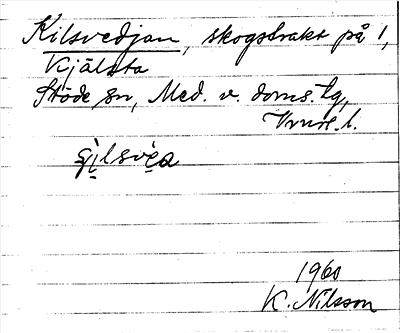 Kilsvedjan, skogstrakt på 1,
Kjälsta
Stöde sn, Med. v. doms. tg,
Vnrl. l.
gi̮lsve̮a
1960
K. Nilsson